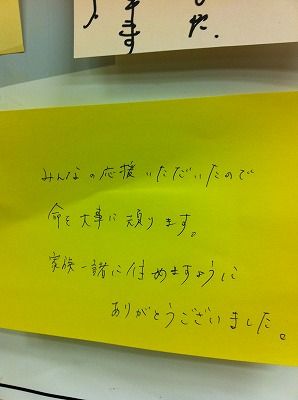 た.
ます
みんなの応援いただいたので
命を大事に頑ります。
家族一緒に住めますように
ありがとうございました。